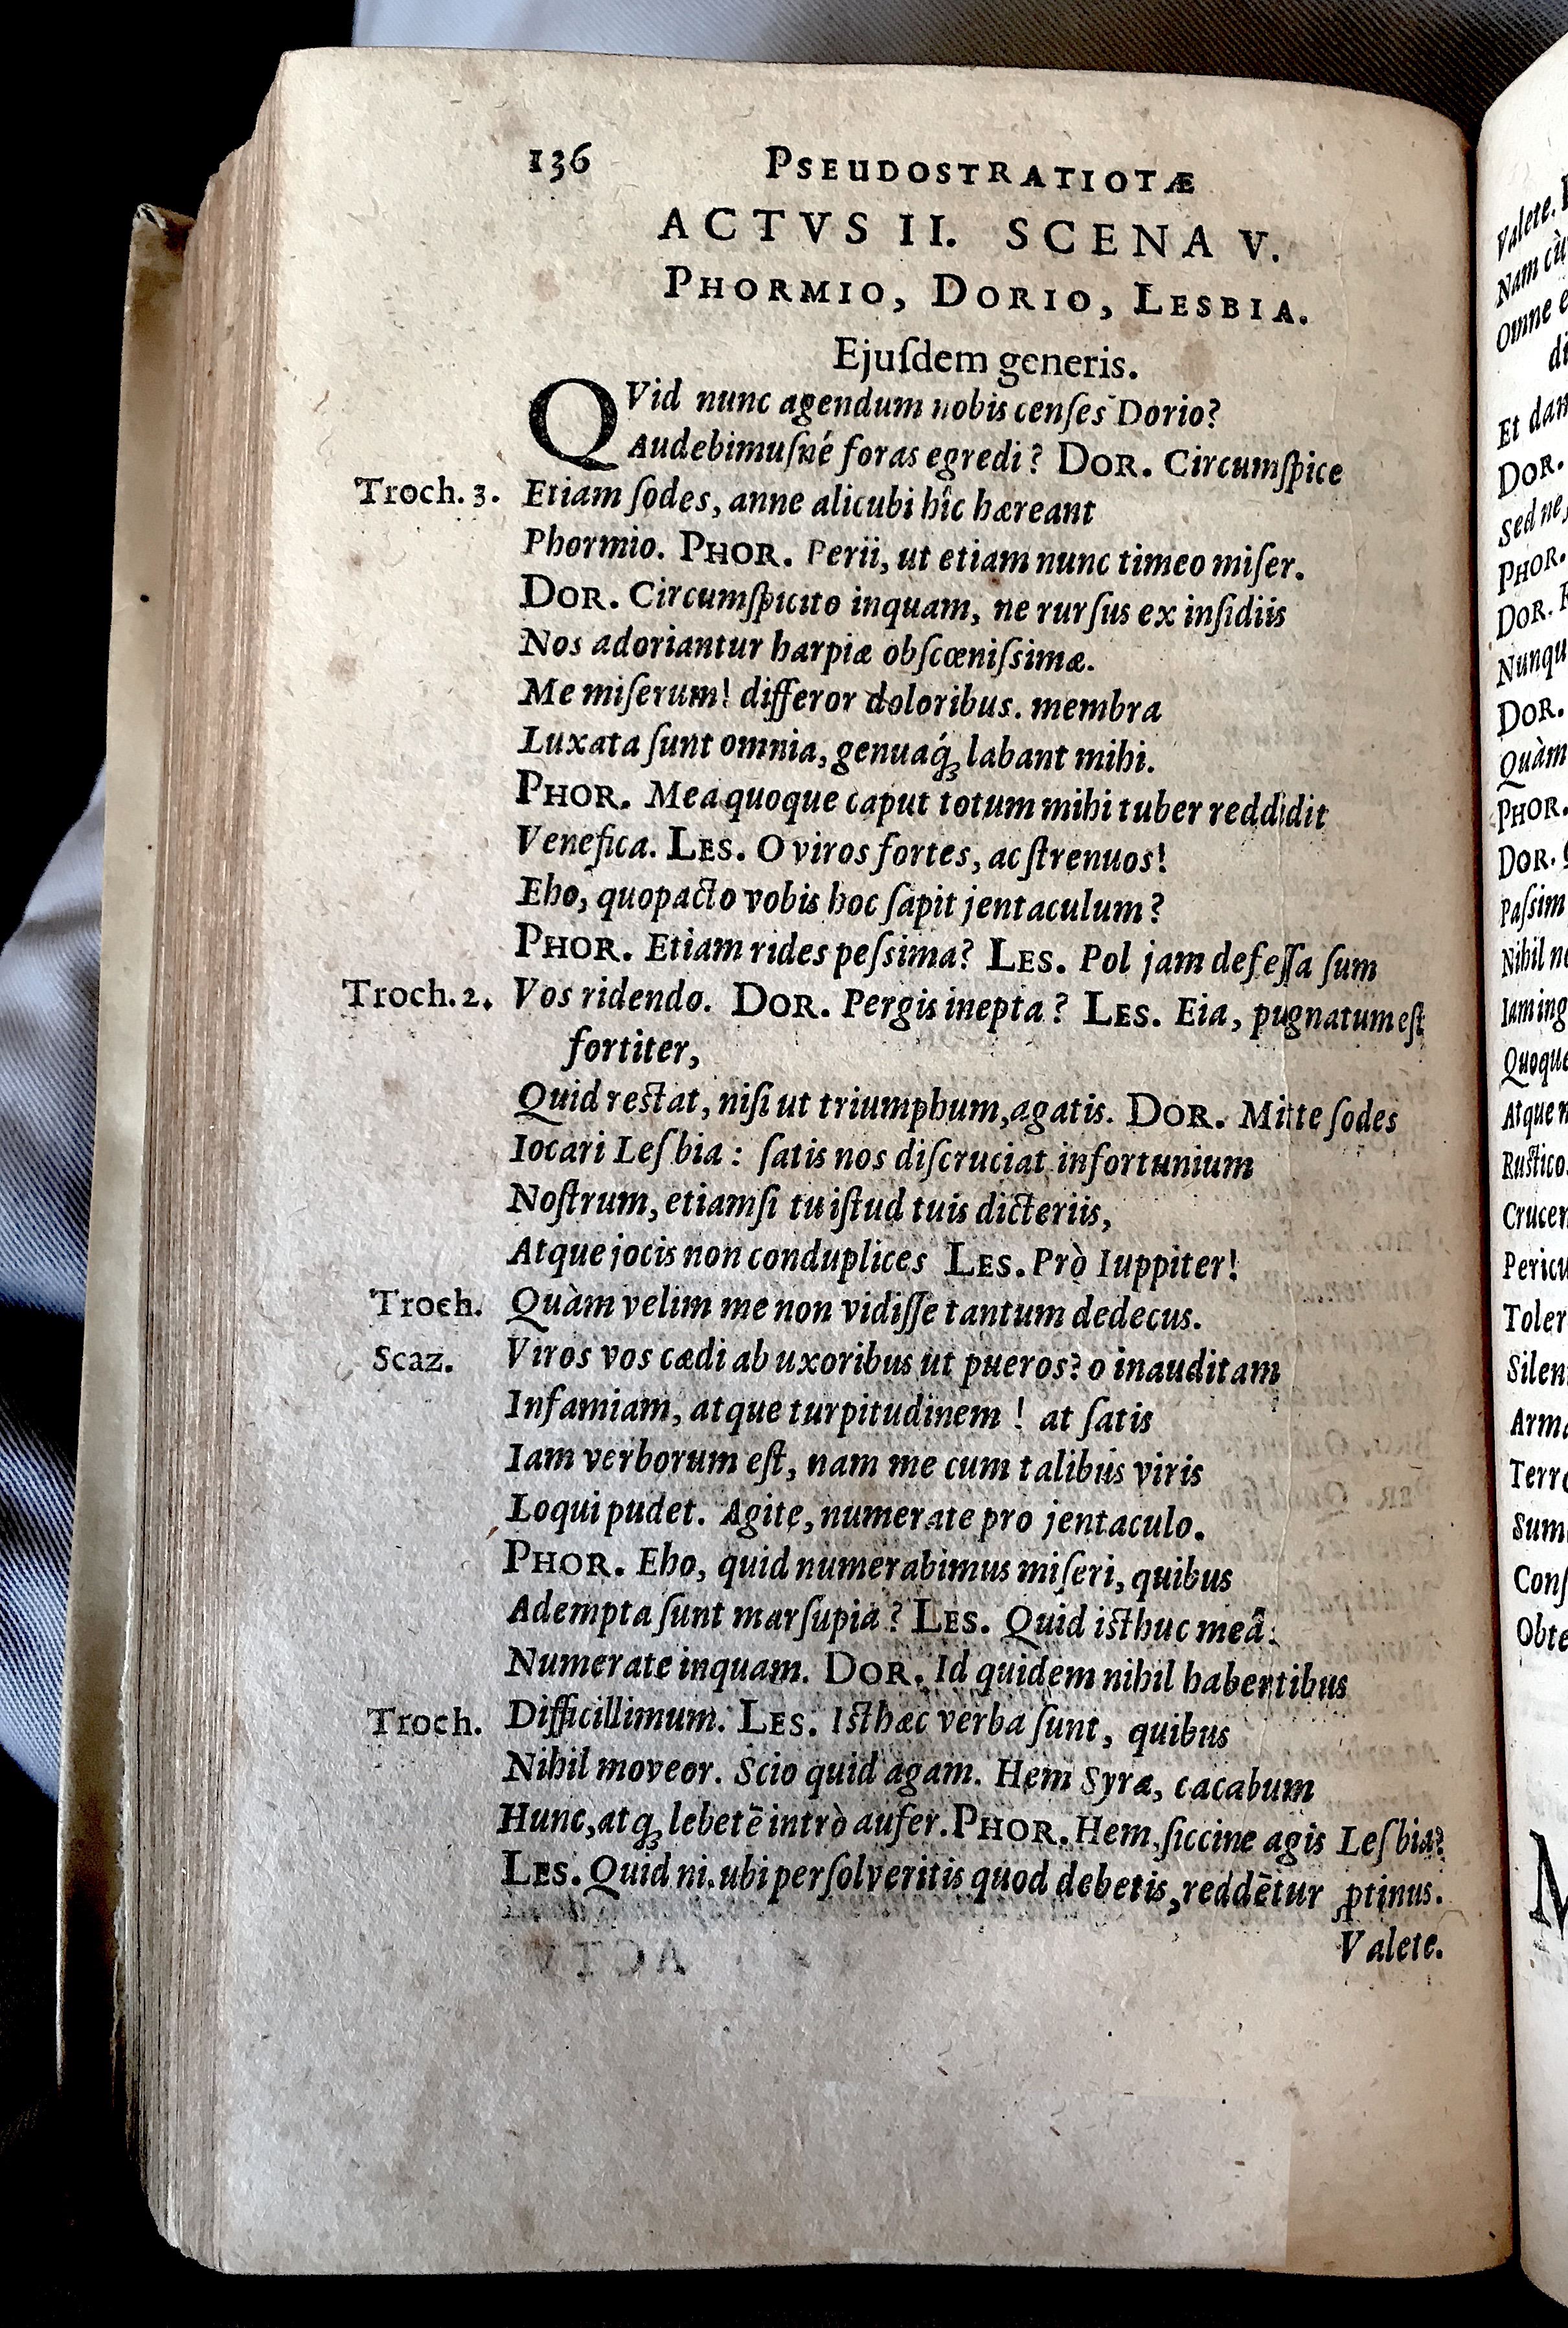 136 PSEUDOSTRATIOTÆ
ACTVS II. SCENA V.
PHORMIO, DORIO, LESBIA.
Ejuſdem generis.
QVid nunc agendum nobis cenſes Dorio?
Audebimuſné foras egredi? DOR. Circumſpice
Troch. 3. Etiam ſodes, anne alicubi hîc hæreant
Phormio. PHOR. Perii, ut etiam nunc timeo miſer.
DOR. Circumſpicito inquam, ne rurſus ex inſidiis
Nos adoriantur harpiæ obſcœniſsimæ.
Me miſerum! differor doloribus. membra
Luxata ſunt omnia, genuaq́ꝫ labant mihi.
PHOR. Mea quoque caput totum mihi tuber reddidit
Venefica. LES. O viros fortes, ac ſtrenuos!
Eho, quo pacto vobis hoc ſapit jentaculum?
PHOR. Etiam rides peſsima? LES. Pol jam defeſſa ſum
Troch. 2. Vos ridendo. DOR. Pergis inepta? LES. Eia, pugnatum eſt
fortiter,
Quid restat, niſi ut triumphum, agatis. DOR. Mitte ſodes
Iocari Leſbia: ſatis nos diſcruciat infortunium
Noſtrum, etiamſi tu iſtud tuis dicteriis,
Atque jocis non conduplices LES. Prò Iuppiter!
Troch. Quàm velim me non vidiſſe tantum dedecus.
Scaz. Viros vos cædi ab uxoribus ut pueros? o inauditam
Infamiam, atque turpitudinem! at ſatis
Iam verborum eſt, nam me cum talibus viris
Loqui pudet. Agite, numerate pro jentaculo.
PHOR. Eho, quid numerabimus miſeri, quibus
Adempta ſunt marſupia? LES. Quid isthuc meâ:
Numerate inquam. DOR. Id quidem nihil habentibus
Troch. Difficillimum. LES. Isthæc verba ſunt, quibus
Nihil moveor. Scio quid agam. Hem Syra, cacabum
Hunc, atqꝫ lebetē intrò aufer. PHOR. Hem, ſiccine agis Leſbia?
LES. Quid ni. ubi perſolveritis quod debetis, reddētur ꝓtinus.
Valete.
Valete.
Nam
Omne
Et
DOR.
Sed ne
PHOR.
DOR.
DOR.
Quàm
PHOR.
DOR.
Paſsim
Nihil
Iam
Quoque
Atque